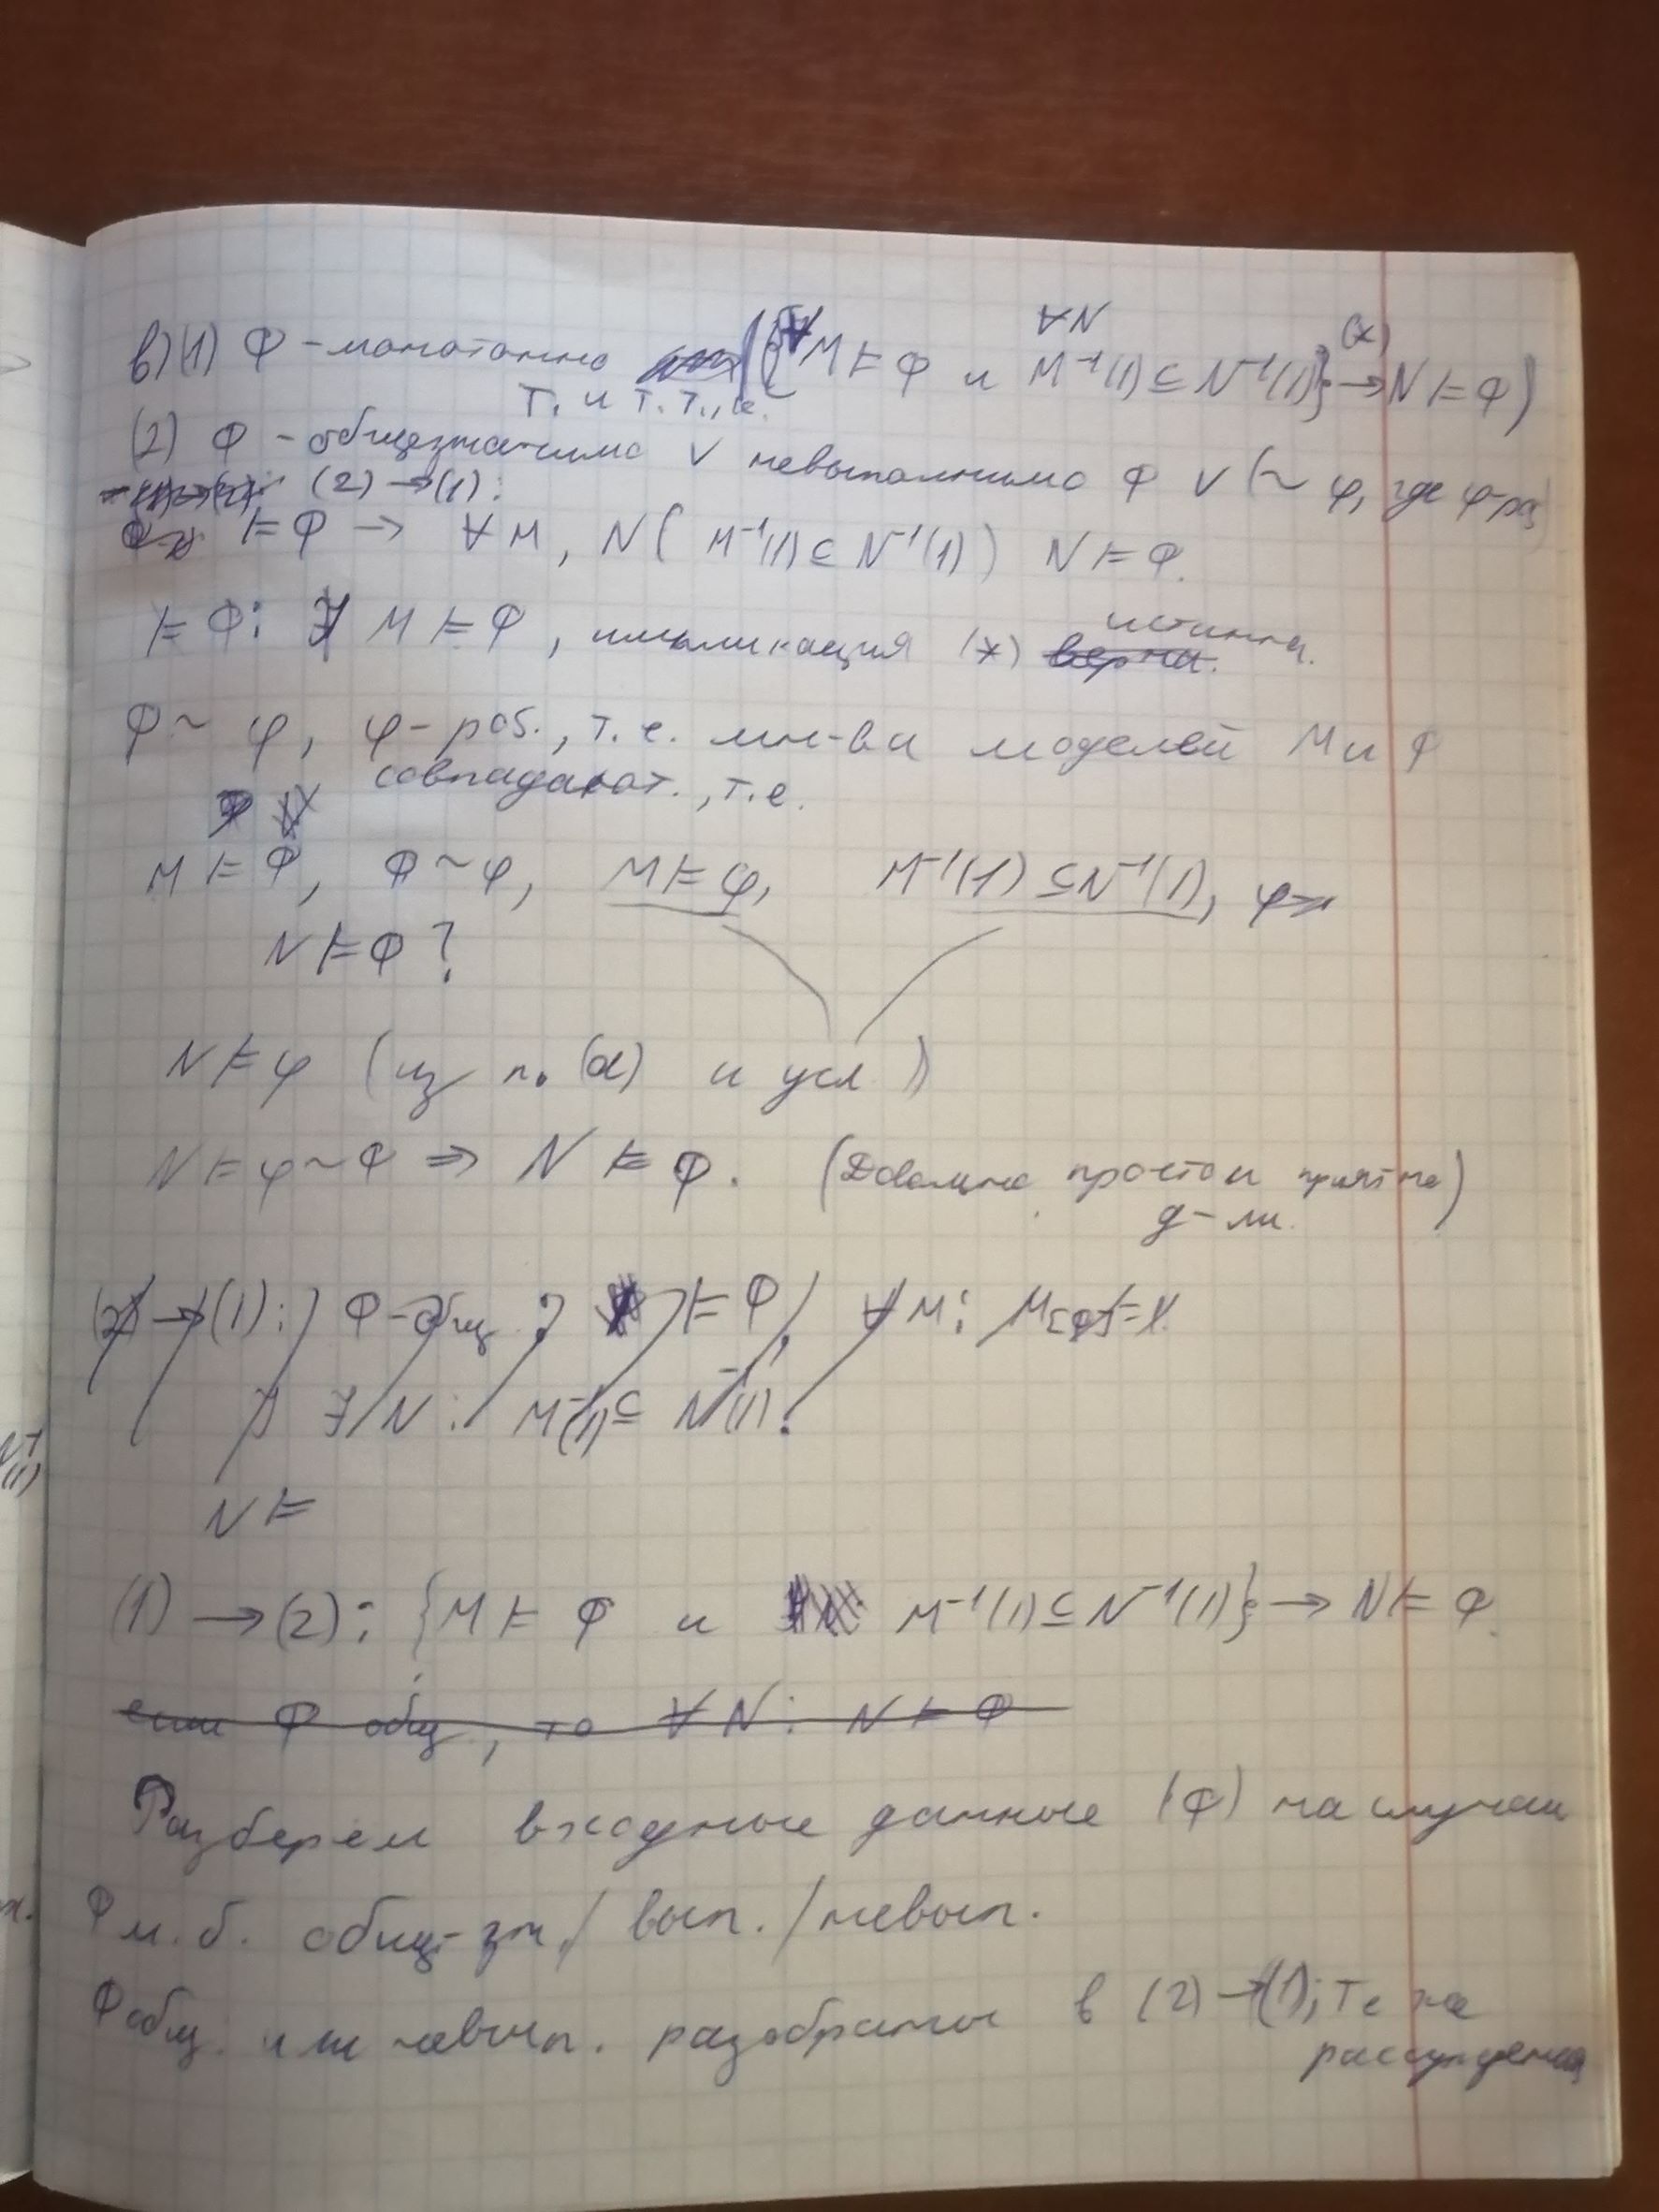 в)(1) Ф - монотонно т. и т. т., к. ({∀M ⊨ Ф и ∀N M⁻¹(1) ⊆ N⁻¹(1)} →(*) N ⊨ Ф)
(2) Ф - общезначимо ∨ невыполнимо Ф ∨ (~ φ, где φ-роз)
(2) → (1):
⊨ Ф → ∀M, N ( M⁻¹(1) ⊆ N⁻¹(1) ) N ⊨ Ф.
⊨ Ф: ∄ M ⊨ Ф, импликация (*) истинна.
Ф ~ φ, φ - роз., т.е. мн-ва моделей M и Ф
совпадают., т.е.
M ⊨ Ф, Ф ~ φ, M ⊨ φ, M⁻¹(1) ⊆ N⁻¹(1),
N ⊨ Ф ?
N ⊨ φ (из п. (а) и усл.)
N ⊨ φ ~ Ф ⇒ N ⊨ Ф. (Довольно простои приятно)
д-ли.
(2) → (1): Ф-общ. ? ⊨ Ф, ∀M: M[Ф]=1.
∃ N: M⁻¹(1) ⊆ N⁻¹(1).
N ⊨
(1) → (2): {M ⊨ Ф и M⁻¹(1) ⊆ N⁻¹(1)} → N ⊨ Ф.
если Ф общ, то ∀N: N ⊨ Ф
Разберём входные данные (Ф) на случаи
Ф м. б. общ-зн / вып. / невып.
Ф общ. или невып. разобраны в (2) → (1); те же
рассуждения